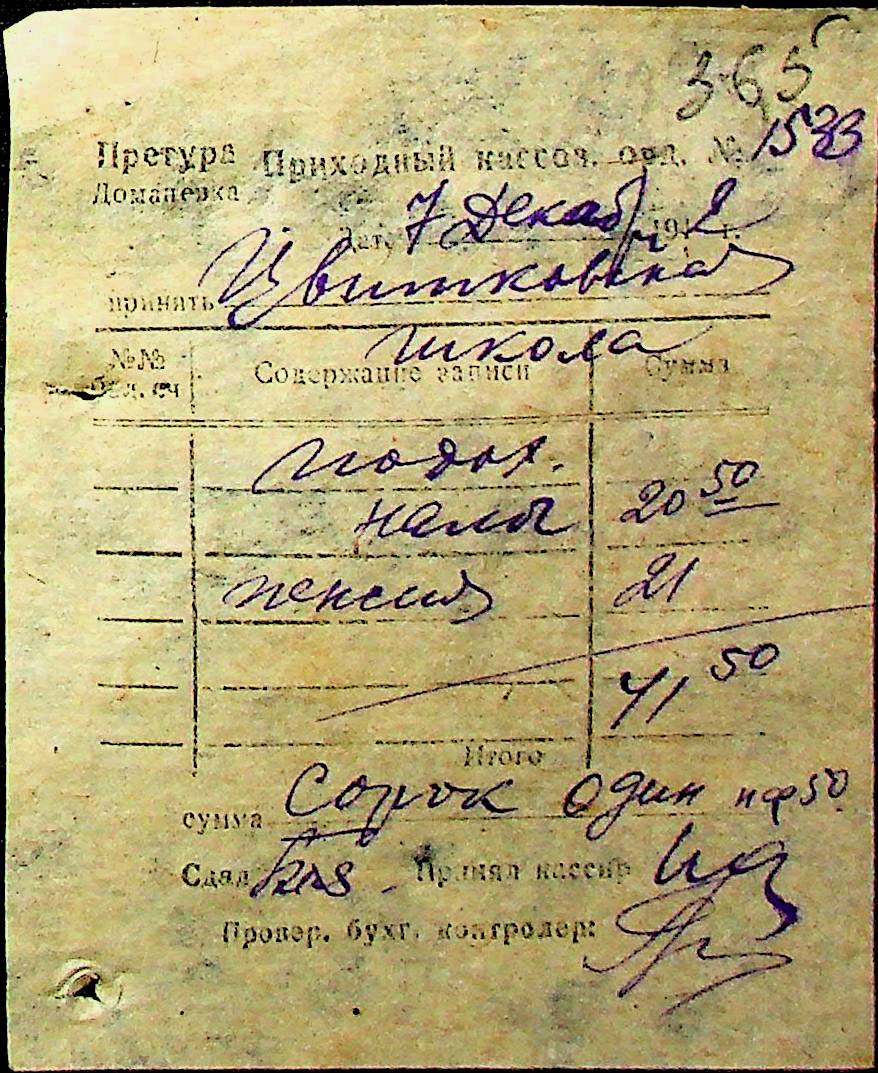 365
Претура Приходный кассов. орд. № 1533
Доманевка
Дату 7 Декабр 194 2 г.
принять Цвитковская
школа
№№
сч
Содержание записи
Сумма
подох.
налог 20 50
пенсия 21
41 50
Итого
сумма Сорок один пф 50
Сдал Принял кассир
Провер. бухг. контролер: